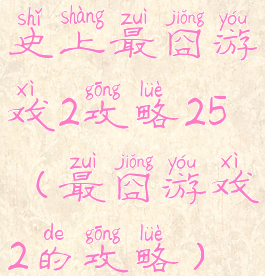 shǐ shàng zuì jiǒng yóu
史上最囧游
xì gōng lüè
戏2攻略25
zuì jiǒng yóu xì
（最囧游戏
de gōng lüè
2的攻略）